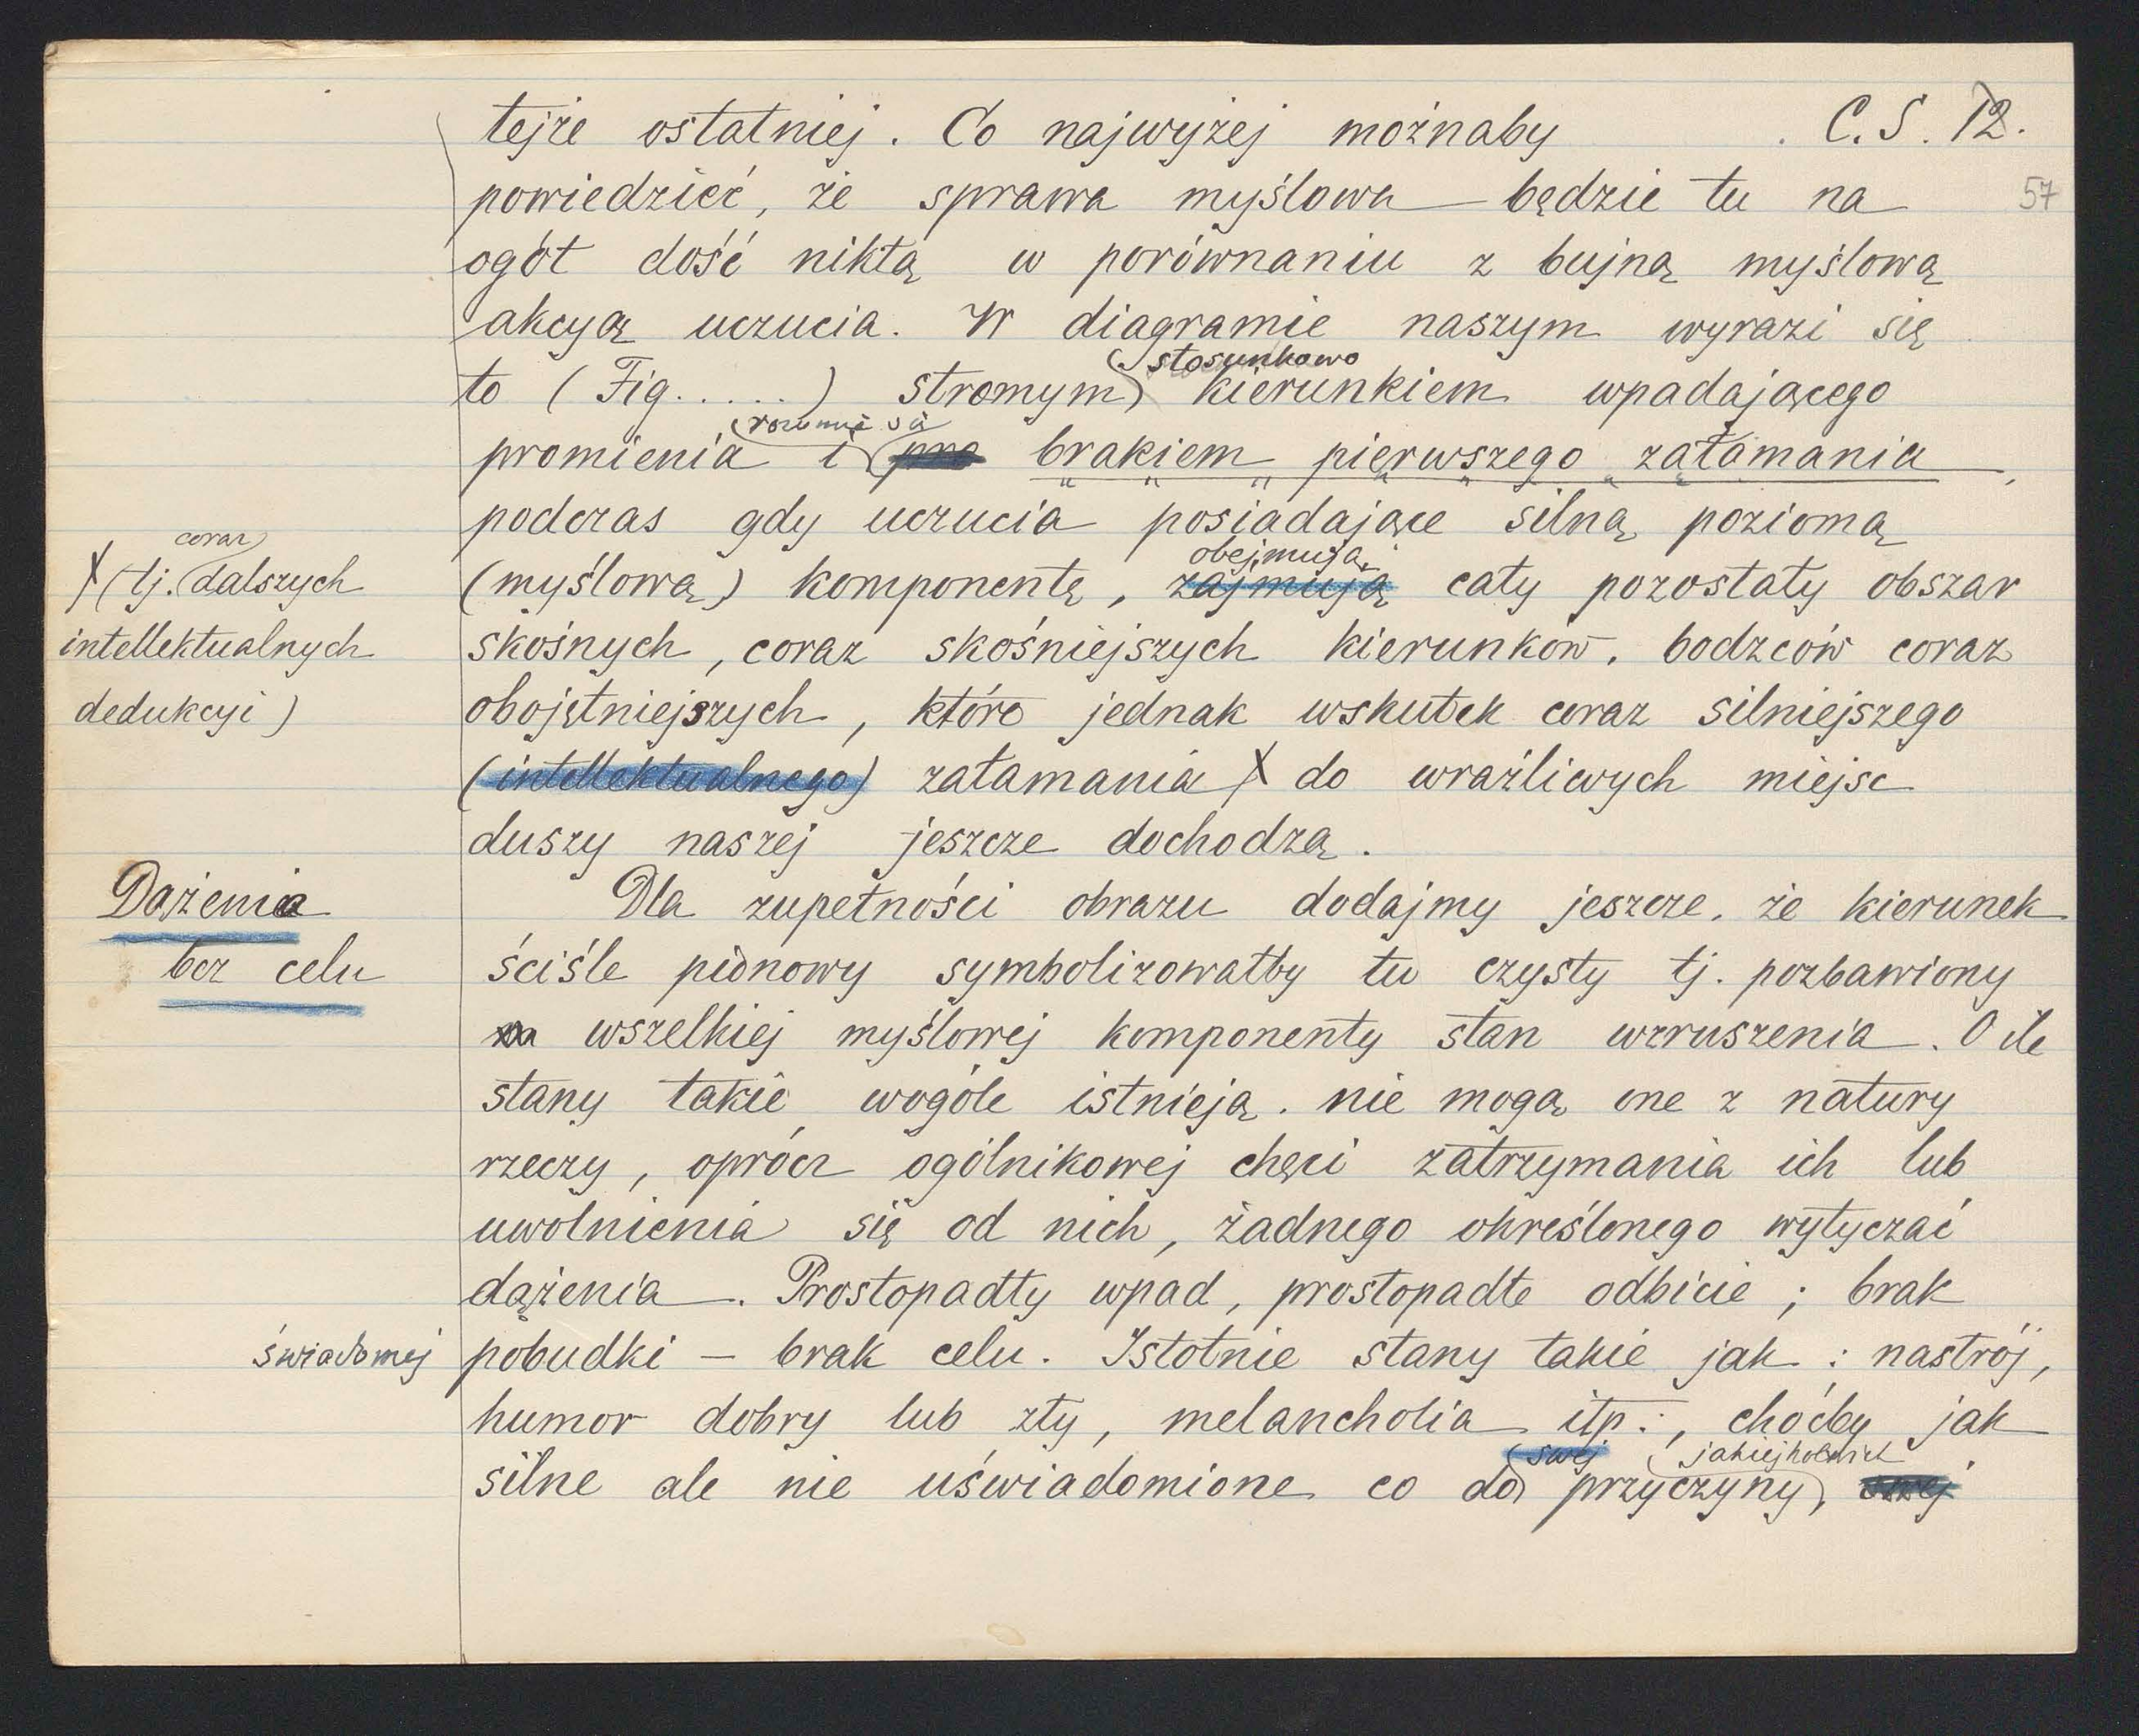 tejże ostatniej. Co najwyżej możnaby . C. S. 12.
powiedzieć, że sprawa myślowa będzie tu na 57
ogół dość nikłą w porównaniu z bujną myślową
akcyą uczucia. W diagramie naszym wyrazi się
stosunkowo
to (Fig. . . . . .) stromym kierunkiem wpadającego
rozumie się
promienia i pro brakiem pierwszego załamania,
podczas gdy uczucia posiadające silną poziomą
obejmują
(myślową) komponentę, zajmują cały pozostały obszar
coraz
X (tj. dalszych
intellektualnych
dedukcyi)
skośnych, coraz skośniejszych kierunków, bodzców coraz
obojętniejszych, które jednak wskutek coraz silniejszego
(intellektualnego) załamania X do wrażliwych miejsc
duszy naszej jeszcze dochodzą.
Dążenia
bez celu
Dla zupełności obrazu dodajmy jeszcze, że kierunek
ściśle pionowy symbolizowałby tu czysty tj. pozbawiony
wszelkiej myślowej komponenty stan wzruszenia. O ile
stany takie wogóle istnieją, nie mogą one z natury
rzeczy, oprócz ogólnikowej chęci zatrzymania ich lub
uwolnienia się od nich, żadnego określonego wytyczać
dążenia. Prostopadły wpad, prostopadłe odbicie; brak
świadomej pobudki – brak celu. Istotnie stany takie jak: nastrój,
humor dobry lub zły, melancholia itp., choćby jak
swej jakiejkolwiek
silne ale nie uświadomione co do przyczyny, swej